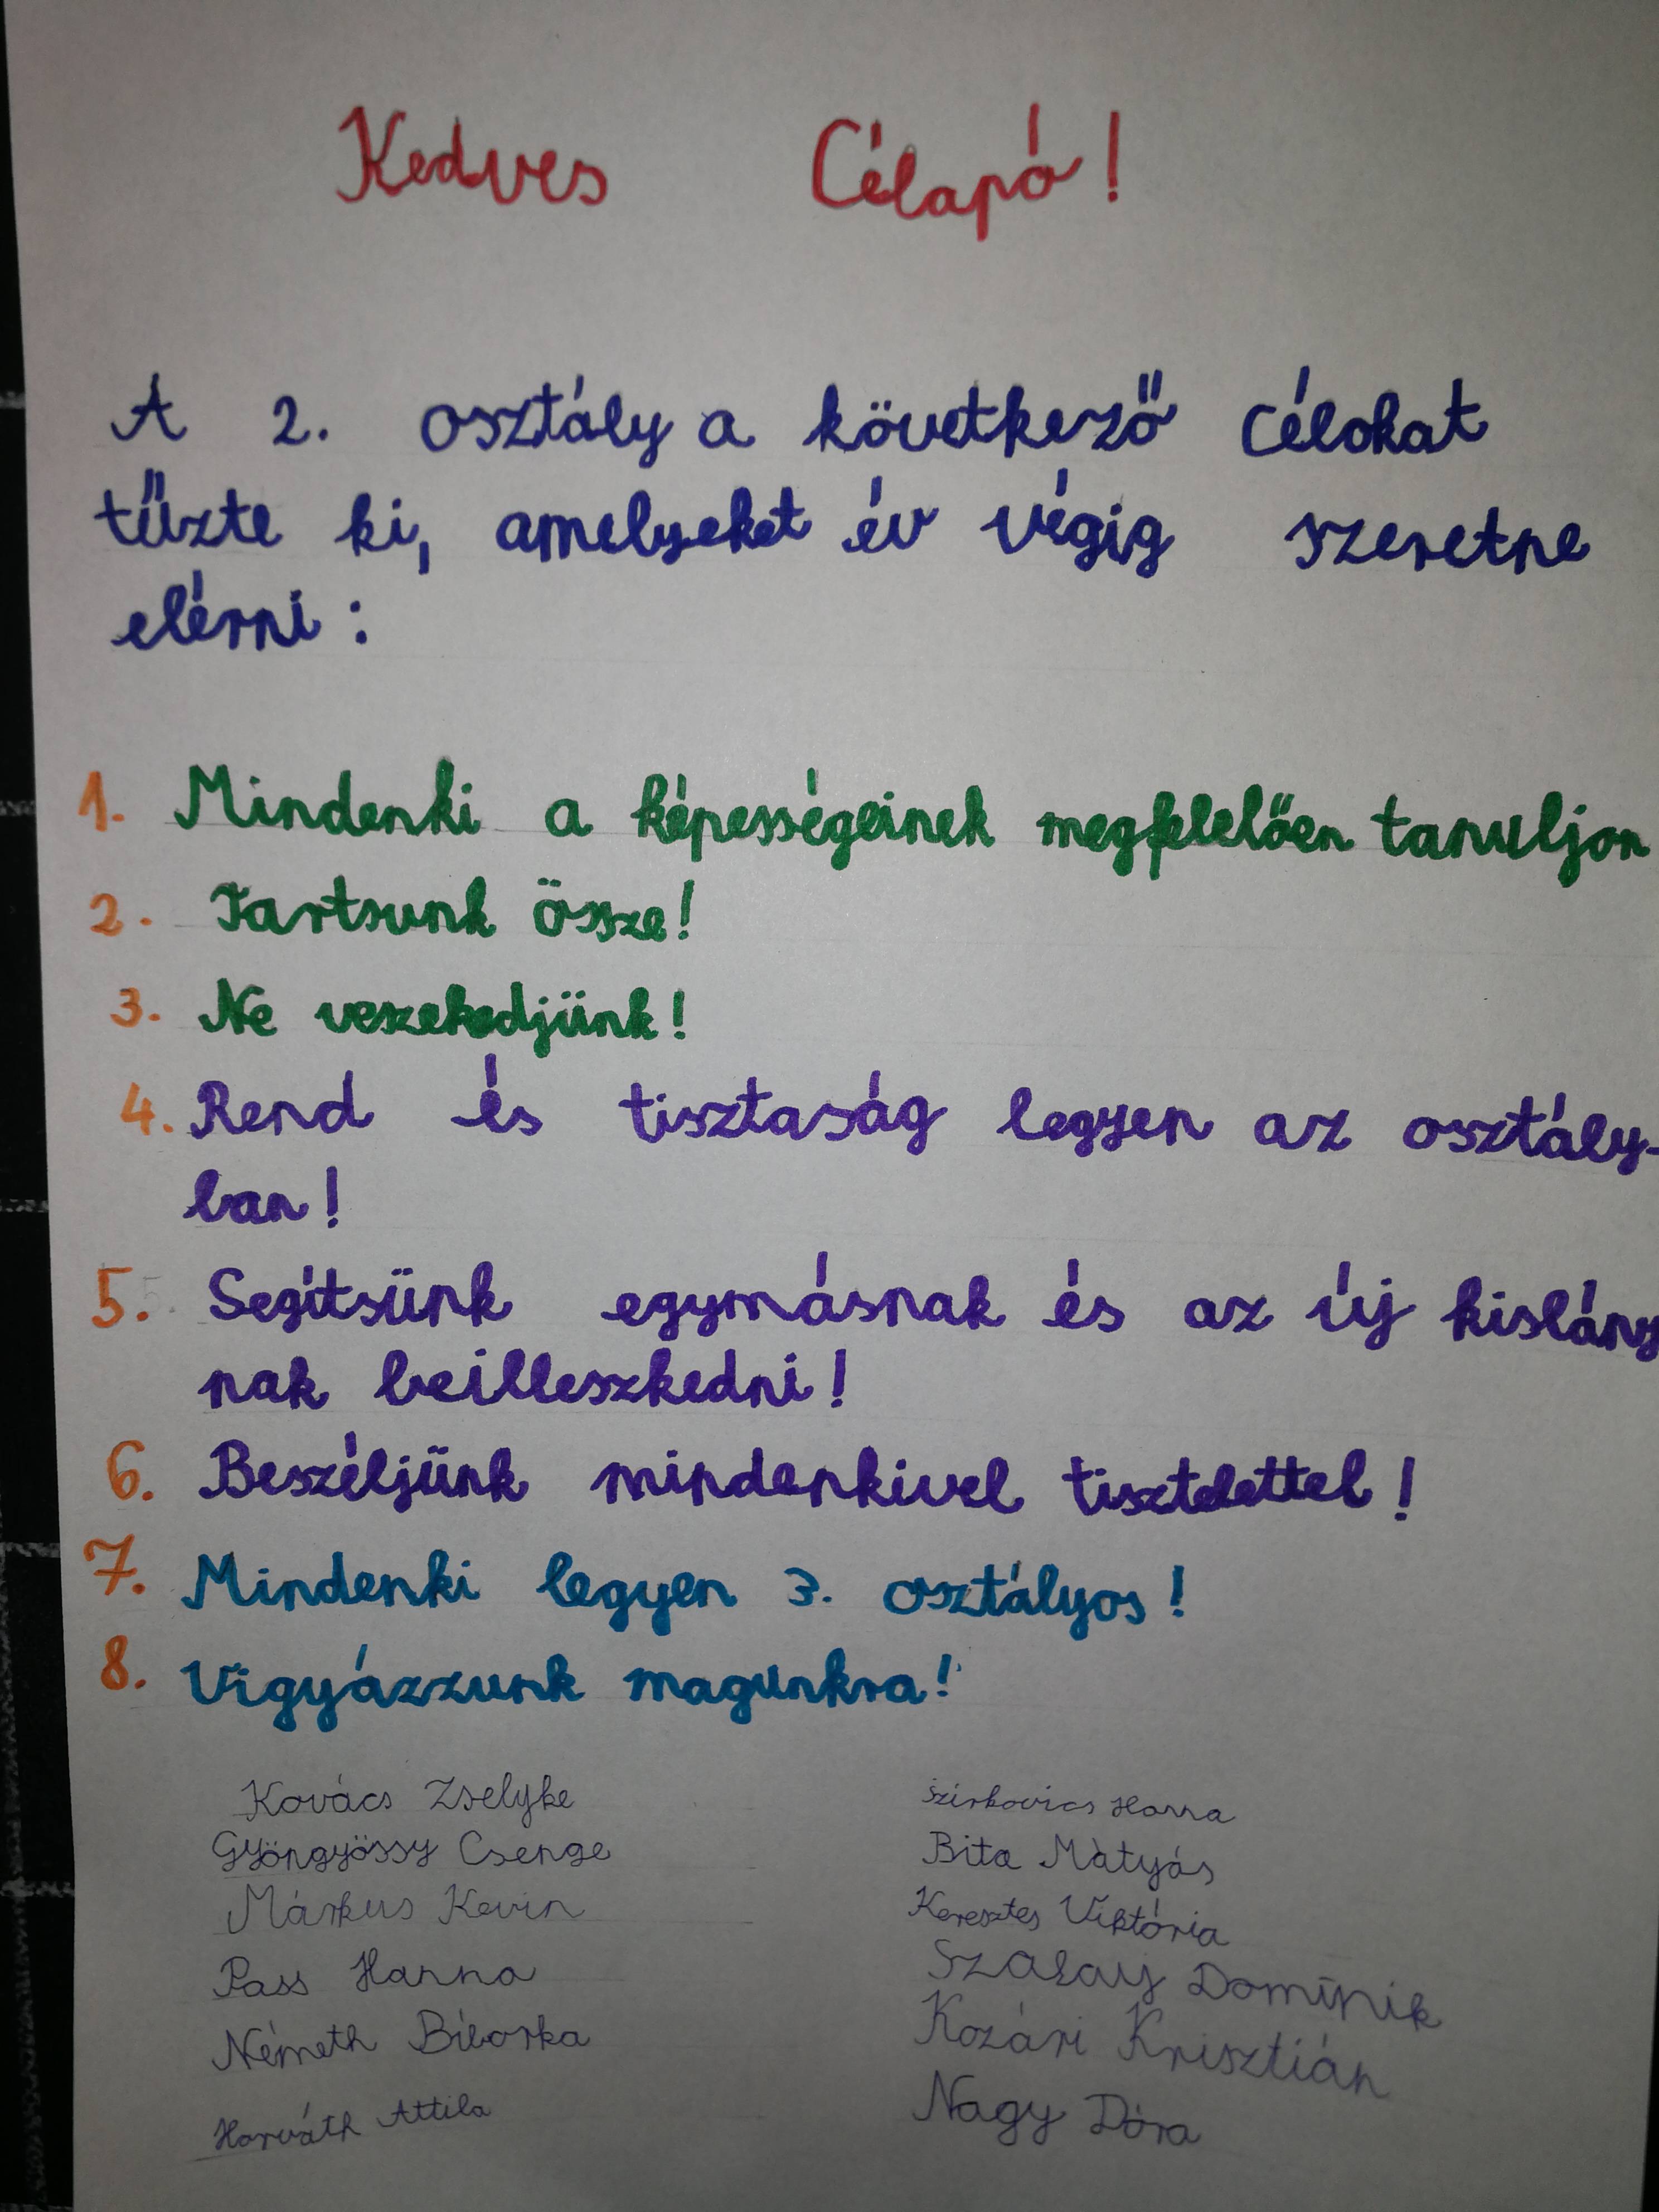 Kedves Célapó!
A 2. osztály a következő célokat
tűzte ki, amelyeket év végig szeretne
elérni:
1. Mindenki a képességeinek megfelelően tanuljon
2. Tartsunk össze!
3. Ne veszekedjünk!
4. Rend és tisztaság legyen az osztály-
ban!
5. Segítsünk egymásnak és az új kislány
nak beilleszkedni!
6. Beszéljünk mindenkivel tisztelettel!
7. Mindenki legyen 3. osztályos!
8. Vigyázzunk magunkra!
Kovács Zselyke
Gyöngyössy Csenge
Márkus Kevin
Pass Hanna
Németh Bíborka
Horváth Attila
Szirkovics Hanna
Bita Mátyás
Keresztes Viktória
Szalay Dominik
Kozári Krisztián
Nagy Dóra